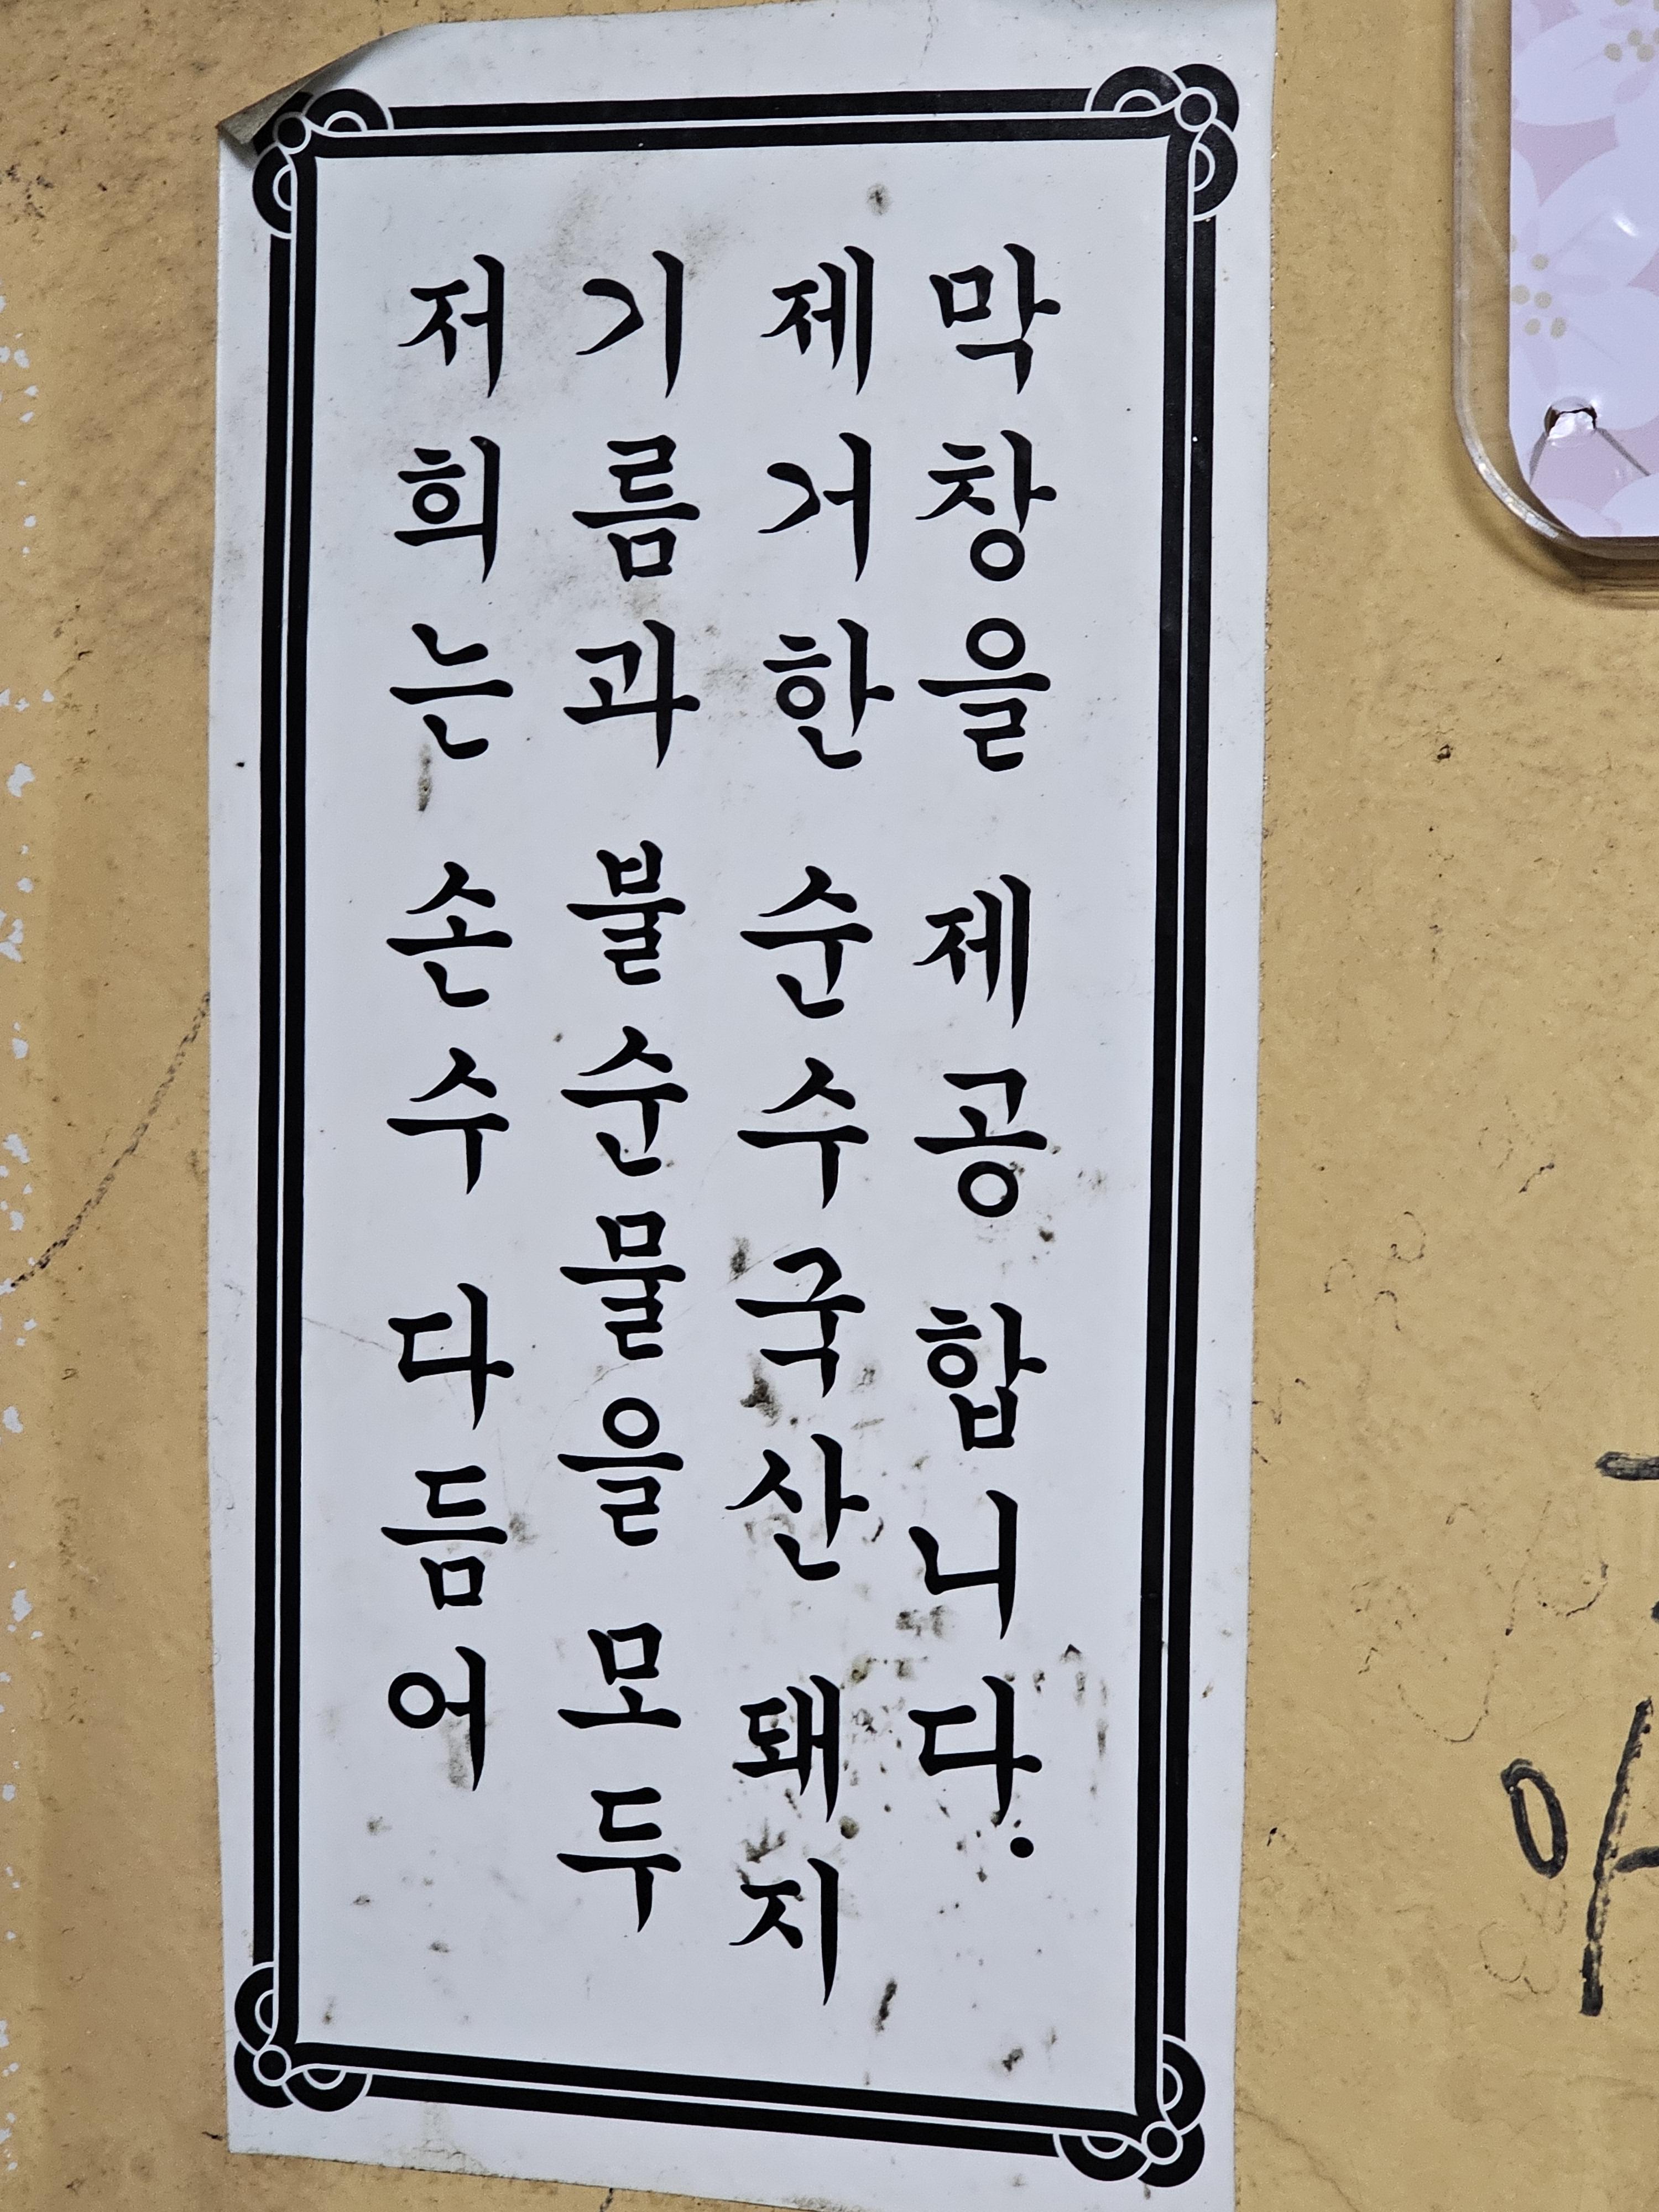 저희는 손수 다듬어
기름과 불순물을 모두
제거한 순수국산 돼지
막창을 제공 합니다.